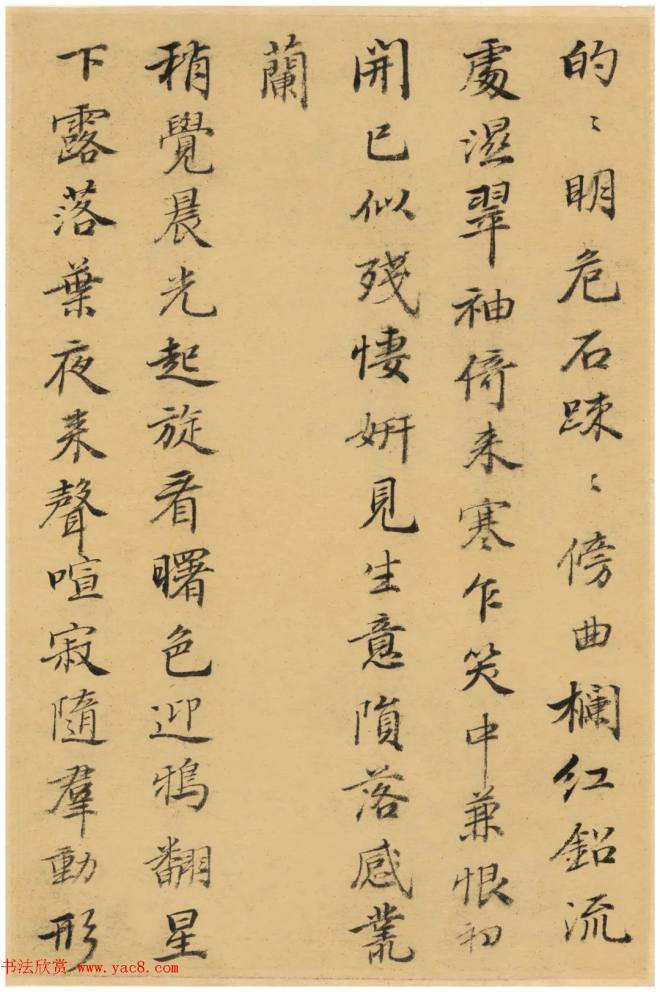 的〻明危石踈〻傍曲欄红鈆流
處濕翠袖倚来寒乍笑中兼恨初
開已似殘悽妍見生意隕落感叢
蘭
稍覺晨光起旋看曙色迎鴉翻星
下露落葉夜来聲喧寂隨羣動形
书法欣赏 www.yac8.com